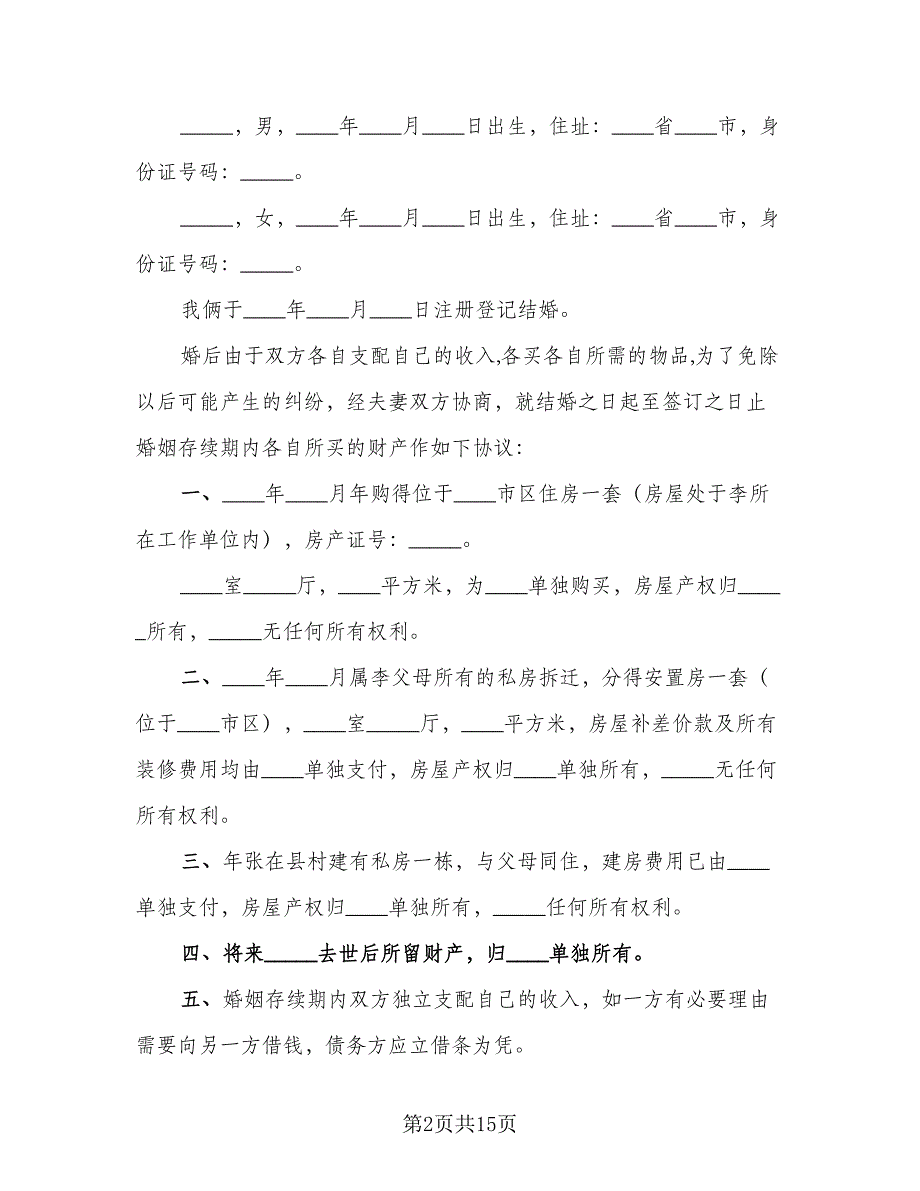 _____，男，____年____月____日出生，住址：____省____市，身
份证号码：_____。
_____，女，____年____月____日出生，住址：____省____市，身
份证号码：_____。
我俩于____年____月____日注册登记结婚。
婚后由于双方各自支配自己的收入,各买各自所需的物品,为了免除
以后可能产生的纠纷，经夫妻双方协商，就结婚之日起至签订之日止
婚姻存续期内各自所买的财产作如下协议：
一、____年____月年购得位于____市区住房一套（房屋处于李所
在工作单位内），房产证号：_____。
____室_____厅，____平方米，为____单独购买，房屋产权归____
_所有，_____无任何所有权利。
二、____年____月属李父母所有的私房拆迁，分得安置房一套（
位于____市区），____室_____厅，____平方米，房屋补差价款及所有
装修费用均由____单独支付，房屋产权归____单独所有，_____无任何
所有权利。
三、年张在县村建有私房一栋，与父母同住，建房费用已由____
单独支付，房屋产权归____单独所有，_____任何所有权利。
四、将来_____去世后所留财产，归____单独所有。
五、婚姻存续期内双方独立支配自己的收入，如一方有必要理由
需要向另一方借钱，债务方应立借条为凭。
第2页共15页